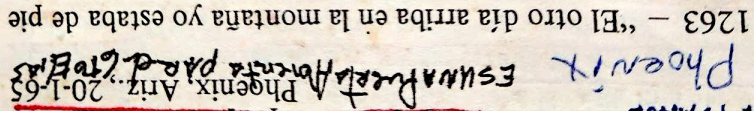 Phoenix, Ariz., 20-1-65
Phoenix ES UNA Puerta Abierta PARA el 6to
1263 – “El otro día arriba en la montaña yo estaba de pie